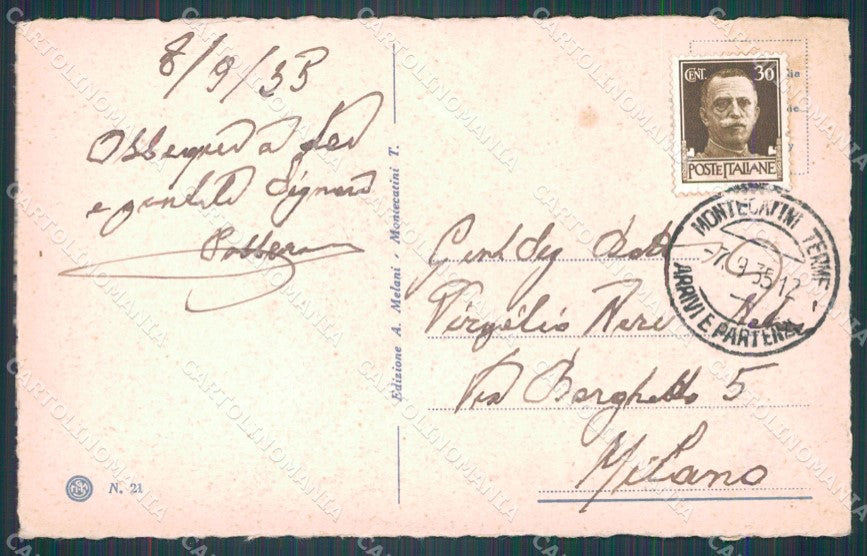 8/9/35
Ossequi a Lei
e gentile Signora
Edizione A. Melani - Montecatini T.
N. 21
CENT. 30
POSTE ITALIANE
MONTECATINI TERME
-7.9.35.12
ARRIVI E PARTENZE
Gent Sig Dott
Virgilio Neri
Via Borghetto 5
Milano
CARTOLINOMANIA